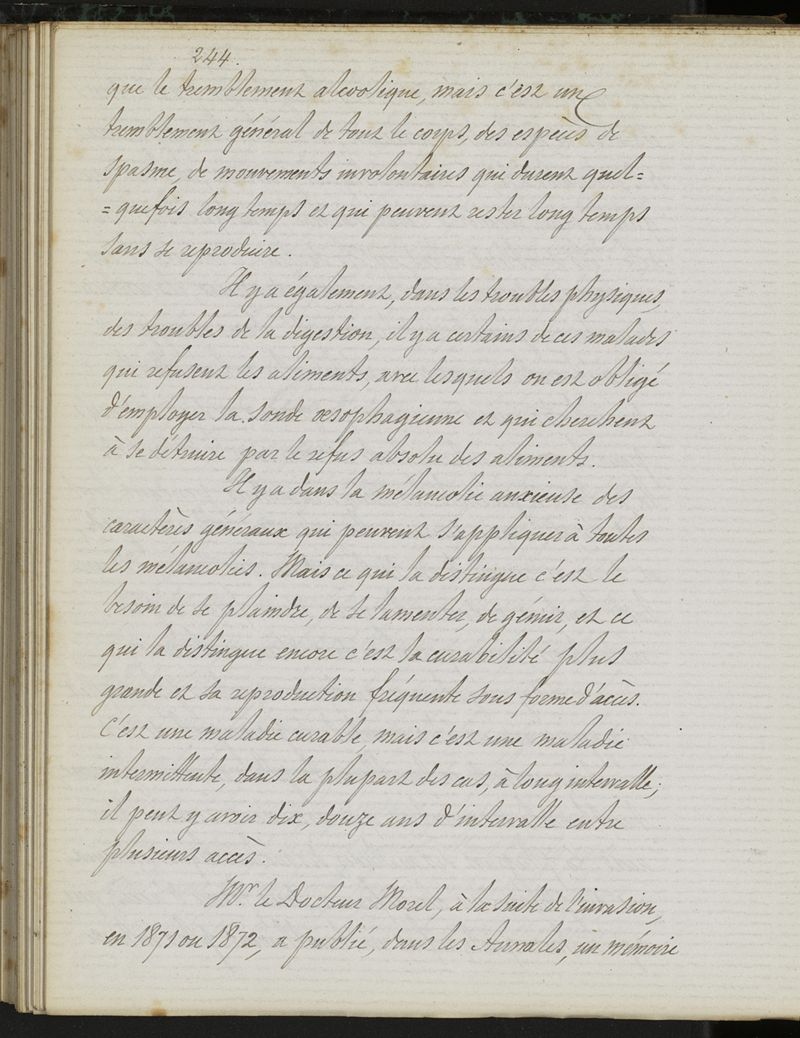 244.
que le tremblement alcoolique, mais c'est un
tremblement général de tout le corps, des espèces de
spasme, de mouvements involontaires qui durent quel=
=quefois longtemps et qui peuvent rester longtemps
sans se reproduire.
Il y a également, dans les troubles physiques,
des troubles de la digestion, il y a certains de ces malades
qui refusent les aliments, avec lesquels on est obligé
d'employer la sonde œsophagienne et qui cherchent
à se détruire par le refus absolu des aliments.
Il y a dans la mélancolie anxieuse des
caractères généraux qui peuvent s'appliquer à toutes
les mélancolies. Mais ce qui la distingue c'est le
besoin de se plaindre, de se lamenter, de gémir, et ce
qui la distingue encore c'est sa curabilité plus
grande et sa reproduction fréquente sous forme d'accès.
C'est une maladie curable, mais c'est une maladie
intermittente, dans la plupart des cas, à long intervalle;
il peut y avoir dix, douze ans d'intervalle entre
plusieurs accès.
Mr. le Docteur Morel, à la suite de l'invasion,
en 1871 ou 1872, a publié, dans les Annales, un mémoire